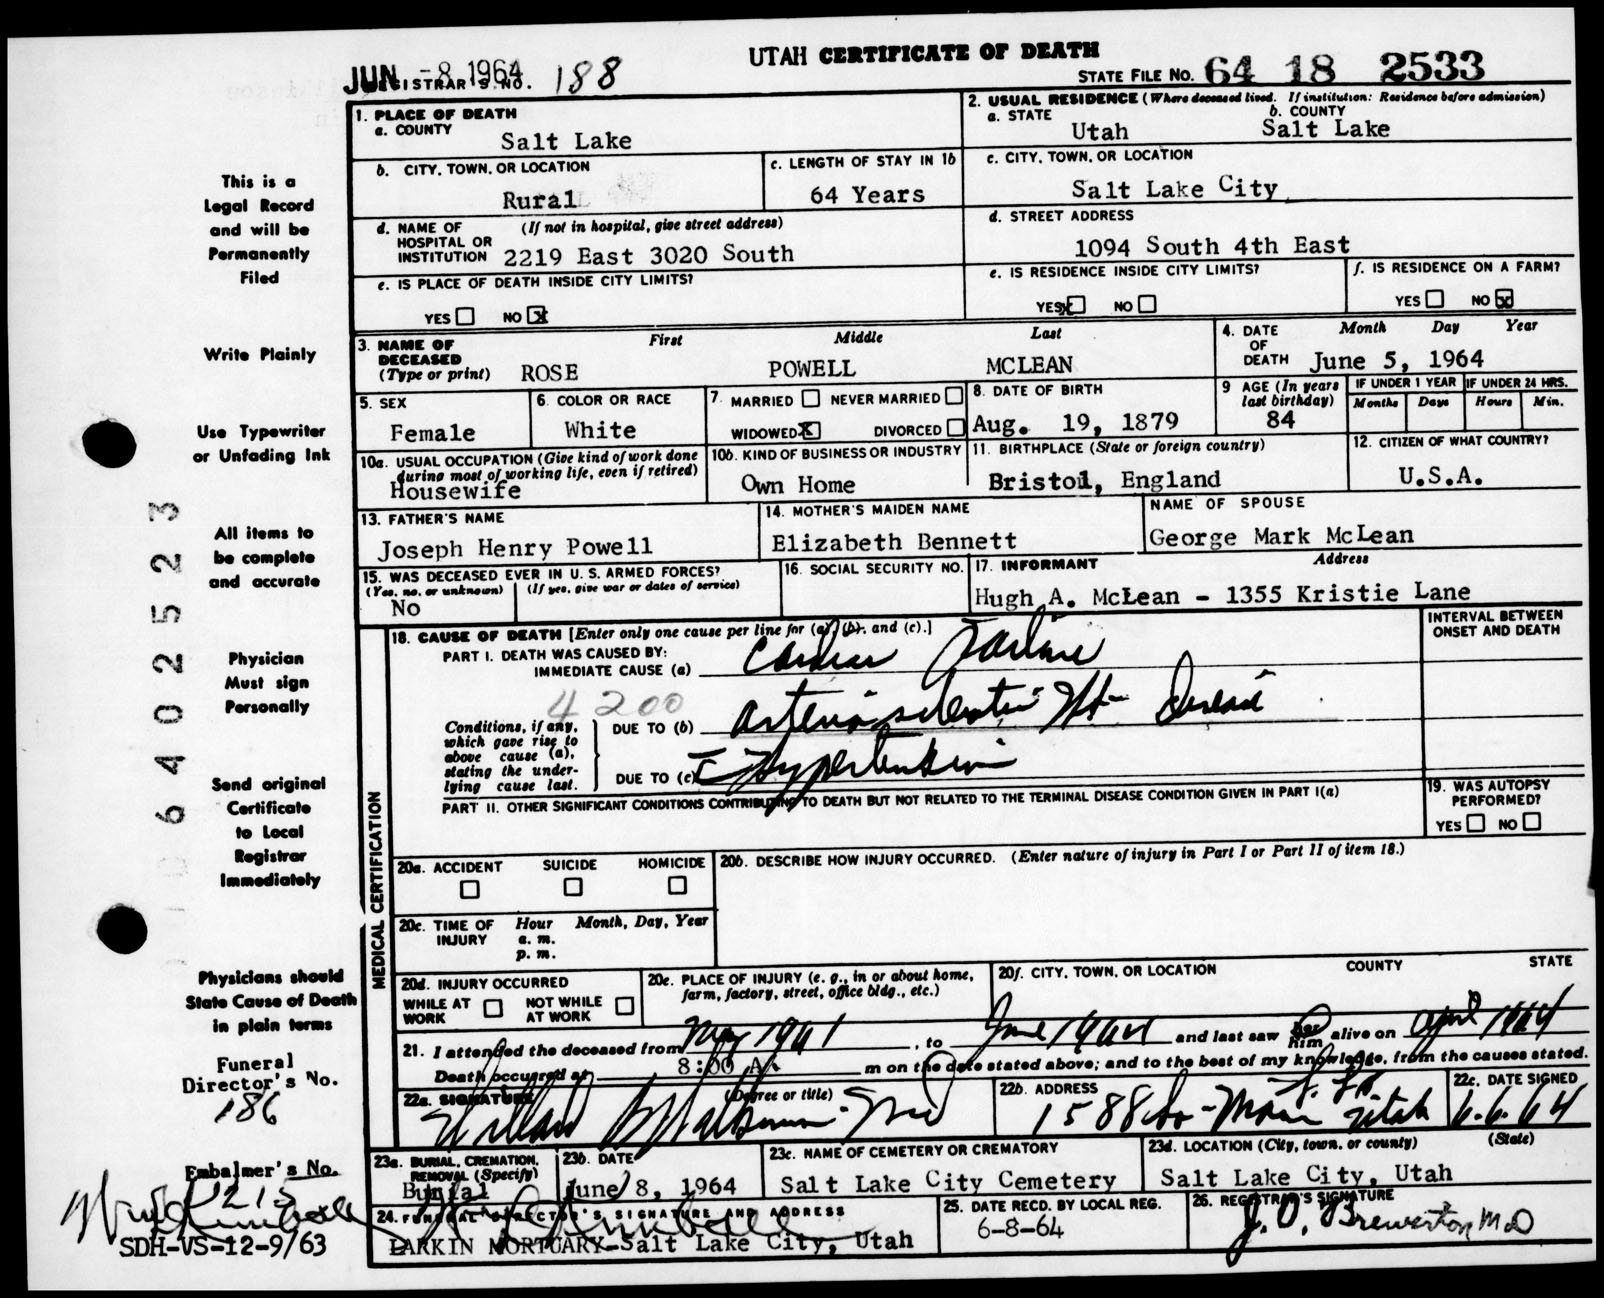 UTAH CERTIFICATE OF DEATH
JUN -8 1964
REGISTRAR'S NO. 188
STATE FILE NO. 64 18 2533
1. PLACE OF DEATH
a. COUNTY
Salt Lake
2. USUAL RESIDENCE (Where deceased lived. If institution: Residence before admission)
a. STATE
Utah
b. COUNTY
Salt Lake
b. CITY, TOWN, OR LOCATION
Rural
c. LENGTH OF STAY IN 1b
64 Years
c. CITY, TOWN, OR LOCATION
Salt Lake City
d. NAME OF HOSPITAL OR INSTITUTION (If not in hospital, give street address)
2219 East 3020 South
d. STREET ADDRESS
1094 South 4th East
e. IS PLACE OF DEATH INSIDE CITY LIMITS?
YES NO X
e. IS RESIDENCE INSIDE CITY LIMITS?
YES X NO
f. IS RESIDENCE ON A FARM?
YES NO X
3. NAME OF DECEASED (Type or print)
First Middle Last
ROSE POWELL MCLEAN
4. DATE OF DEATH
Month Day Year
June 5, 1964
5. SEX
Female
6. COLOR OR RACE
White
7. MARRIED NEVER MARRIED
WIDOWED X DIVORCED
8. DATE OF BIRTH
Aug. 19, 1879
9 AGE (In years last birthday)
84
IF UNDER 1 YEAR
Months Days
IF UNDER 24 HRS.
Hours Min.
10a. USUAL OCCUPATION (Give kind of work done during most of working life, even if retired)
Housewife
10b. KIND OF BUSINESS OR INDUSTRY
Own Home
11. BIRTHPLACE (State or foreign country)
Bristol, England
12. CITIZEN OF WHAT COUNTRY?
U.S.A.
13. FATHER'S NAME
Joseph Henry Powell
14. MOTHER'S MAIDEN NAME
Elizabeth Bennett
NAME OF SPOUSE
George Mark McLean
15. WAS DECEASED EVER IN U. S. ARMED FORCES?
(Yes, no, or unknown) (If yes, give war or dates of service)
No
16. SOCIAL SECURITY NO.
17. INFORMANT Address
Hugh A. McLean - 1355 Kristie Lane
18. CAUSE OF DEATH [Enter only one cause per line for (a), (b), and (c).]
INTERVAL BETWEEN ONSET AND DEATH
PART I. DEATH WAS CAUSED BY:
IMMEDIATE CAUSE (a) Cardiac Failure
4200
Conditions, if any, which gave rise to above cause (a), stating the underlying cause last.
DUE TO (b) Arteriosclerotic Ht Disease
DUE TO (c) c̄ Hypertension
PART II. OTHER SIGNIFICANT CONDITIONS CONTRIBUTING TO DEATH BUT NOT RELATED TO THE TERMINAL DISEASE CONDITION GIVEN IN PART I(a)
19. WAS AUTOPSY PERFORMED?
YES NO
MEDICAL CERTIFICATION
20a. ACCIDENT SUICIDE HOMICIDE
20b. DESCRIBE HOW INJURY OCCURRED. (Enter nature of injury in Part I or Part II of item 18.)
20c. TIME OF INJURY
Hour Month, Day, Year
a. m.
p. m.
20d. INJURY OCCURRED
WHILE AT WORK NOT WHILE AT WORK
20e. PLACE OF INJURY (e. g., in or about home, farm, factory, street, office bldg., etc.)
20f. CITY, TOWN, OR LOCATION COUNTY STATE
21. I attended the deceased from May 1961, to June 1964 and last saw her him alive on April 1964
Death occurred at 8:00 A. m on the date stated above; and to the best of my knowledge, from the causes stated.
22a. SIGNATURE (Degree or title)
22b. ADDRESS
22c. DATE SIGNED
6.6.64
23a. BURIAL, CREMATION, REMOVAL (Specify)
Burial
23b. DATE
June 8, 1964
23c. NAME OF CEMETERY OR CREMATORY
Salt Lake City Cemetery
23d. LOCATION (City, town, or county) (State)
Salt Lake City, Utah
24. FUNERAL DIRECTOR'S SIGNATURE AND ADDRESS
LARKIN MORTUARY-Salt Lake City, Utah
25. DATE RECD. BY LOCAL REG.
6-8-64
26. REGISTRAR'S SIGNATURE
J. O. Brewerton MD
This is a
Legal Record
and will be
Permanently
Filed
Write Plainly
Use Typewriter
or Unfading Ink
All items to
be complete
and accurate
Physician
Must sign
Personally
Send original
Certificate
to Local
Registrar
Immediately
Physicians should
State Cause of Death
in plain terms
Funeral
Director's No.
186
Embalmer's No.
SDH-VS-12-9/63
6402523